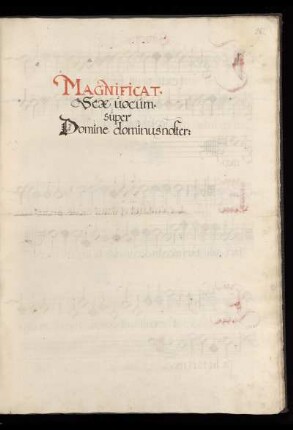 MAGNIFICAT.
Sex vocum.
super
Domine dominus noster: